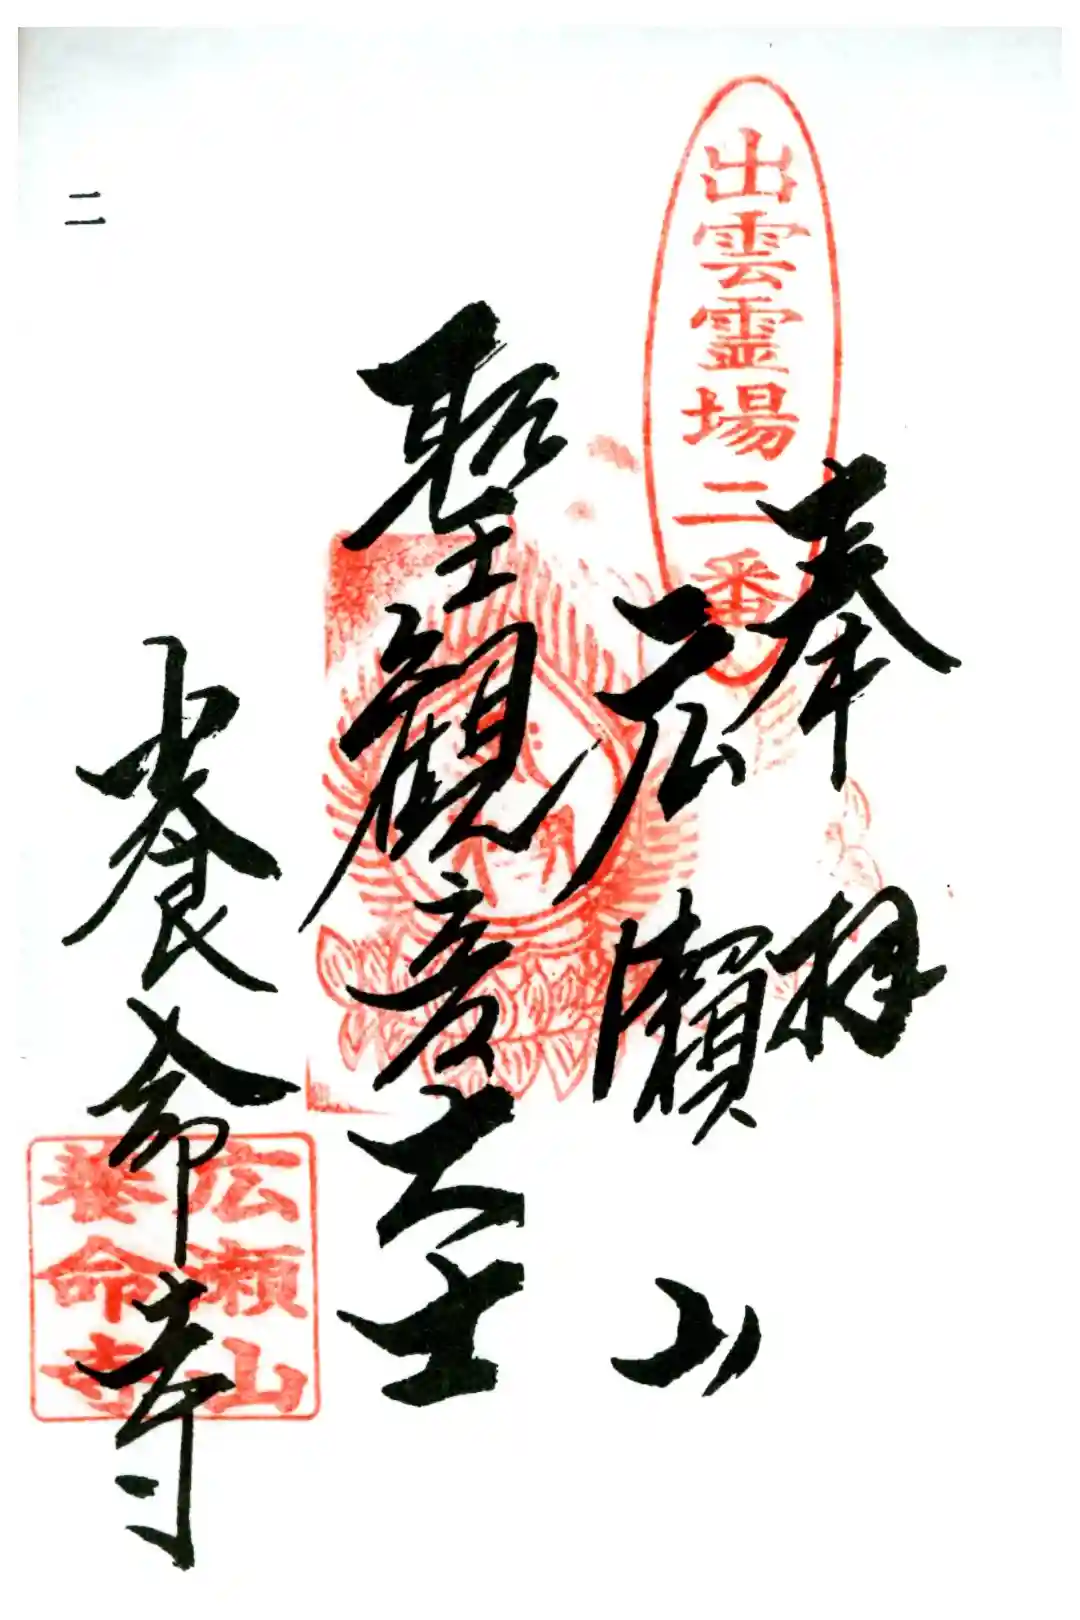 出雲霊場二番
奉拝
広瀬山
聖観音大士
養命寺
広瀬山
養命寺
二